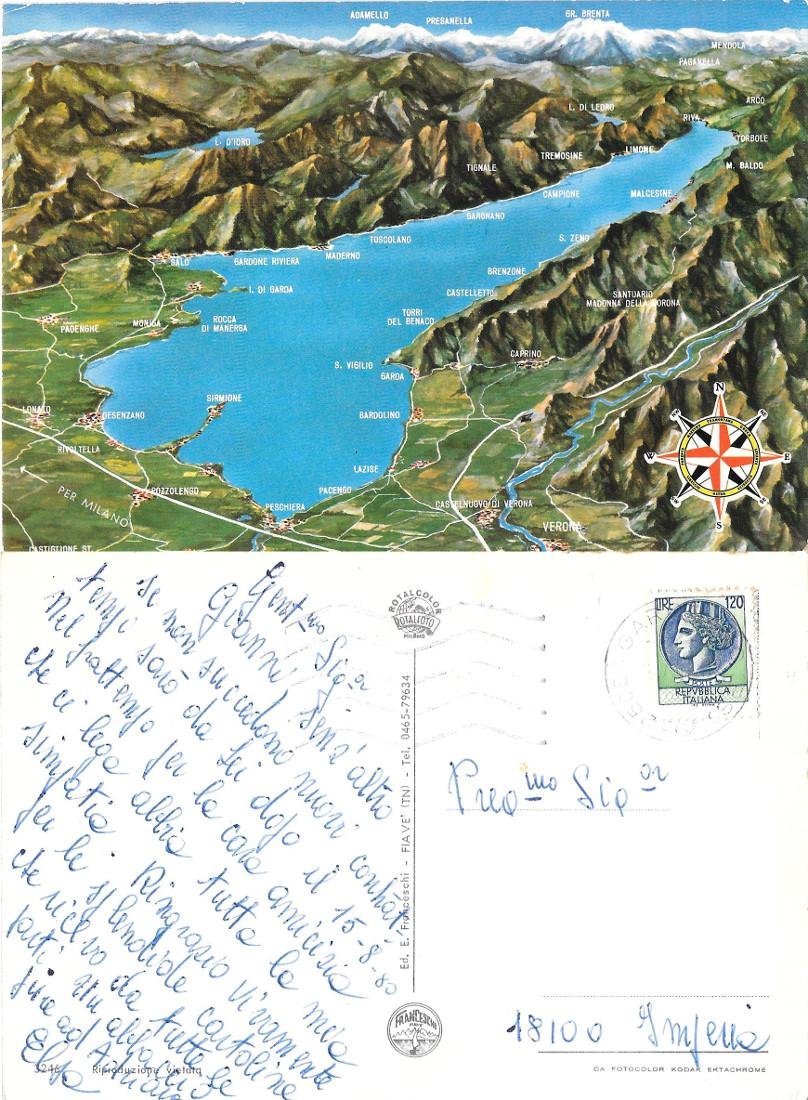 ADAMELLO
PRESANELLA
GR. BRENTA
MENDOLA
PAGANELLA
ARCO
L. DI LEDRO
RIVA
TORBOLE
L. D'IDRO
LIMONE
TREMOSINE
M. BALDO
TIGNALE
CAMPIONE
MALCESINE
GARGNANO
TOSCOLANO
S. ZENO
MADERNO
SALO
GARDONE RIVIERA
BRENZONE
I. DI GARDA
CASTELLETTO
SANTUARIO
MADONNA DELLA CORONA
TORRI
DEL BENACO
ROCCA
DI MANERBA
MONIGA
PADENGHE
CAPRINO
S. VIGILIO
GARDA
N
SIRMIONE
LONATO
DESENZANO
BARDOLINO
RIVOLTELLA
W
E
LAZISE
POZZOLENGO
PACENGO
PER MILANO
PESCHIERA
CASTELNUOVO DI VERONA
S
VERONA
CASTIGLIONE ST.
Gent.mo Sig.or
Gianni Senz'altro
se non succedono nuovi contrat
tempi sarò da Lei dopo il 15-8-80
Nel frattempo per la cara amicizia
che ci lega abbia tutta la mia
simpatia Ringrazio vivamente
per le splendide cartoline
che ricevo da tutte le
parti Un abbraccio e
fino ad
Elsa
ROTALCOLOR
ROTALFOTO
MILANO
LIRE 120
REPVBBLICA
ITALIANA
Preg.mo Sig.or
Ed. E. Franceschi - FIAVE' (TN) - Tel. 0465-79634
FRANCESCHI
FIAVE
18100 Imperia
3246 Riproduzione vietata
DA FOTOCOLOR KODAK EKTACHROME